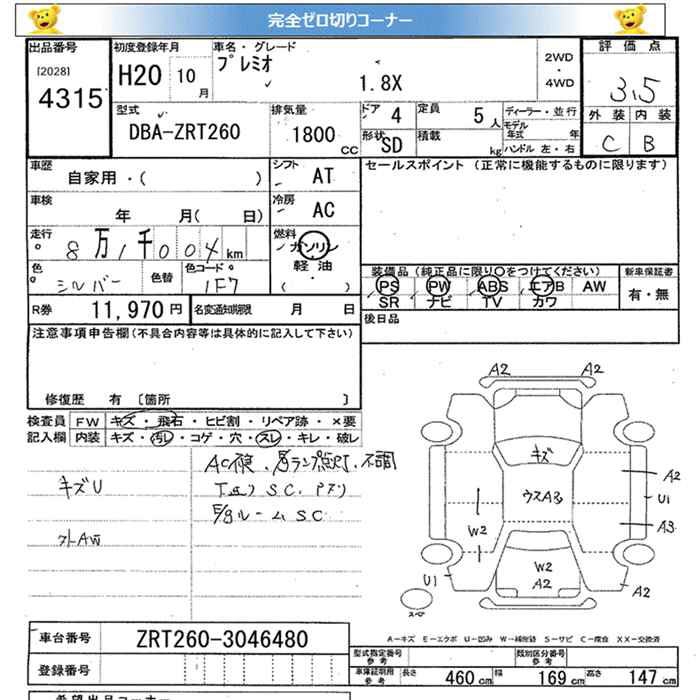 完全ゼロ切りコーナー
出品番号
[2028]
4315
初度登録年月
H20 10月
車名・グレード
プレミオ
1.8X
2WD
・
4WD
評価点
3.5
外装 内装
C B
型式
DBA-ZRT260
排気量
1800 CC
ドア 4
定員 5人
形状 SD
積載 kg
ディーラー・並行
モデル年式 年
ハンドル 左・右
車歴
自家用・( )
シフト AT
車検
年 月( 日)
冷房 AC
走行
8万1千004km
燃料
ガソリン
軽油
( )
色 シルバー
色替
色コード 1F7
R券 11,970円
名変通知期限 月 日
セールスポイント (正常に機能するものに限ります)
装備品 (純正品に限り○をつけてください)
PS PW ABS エアB AW
SR ナビ TV カワ
新車保証書
有・無
後日品
注意事項申告欄(不具合内容等は具体的に記入して下さい)
修復歴 有 [箇所 ]
検査員記入欄
FW キズ・飛石・ヒビ割・リペア跡・×要
内装 キズ・汚レ・コゲ・穴・スレ・キレ・破レ
キズU
外AW
S.C.
ルームSC
A2 A2
キズ
ウスA3
A2
U1
A3
W2
W2
A2
U1
A2
スペア
A-キズ E-エクボ U-凹み W-補修跡 S-サビ C-腐食 XX-交換済
車台番号 ZRT260-3046480
登録番号
型式指定番号
参考
類別区分番号
参考
車庫証明用
参考
長さ 460cm 幅 169cm 高さ 147cm
希望出品コーナー